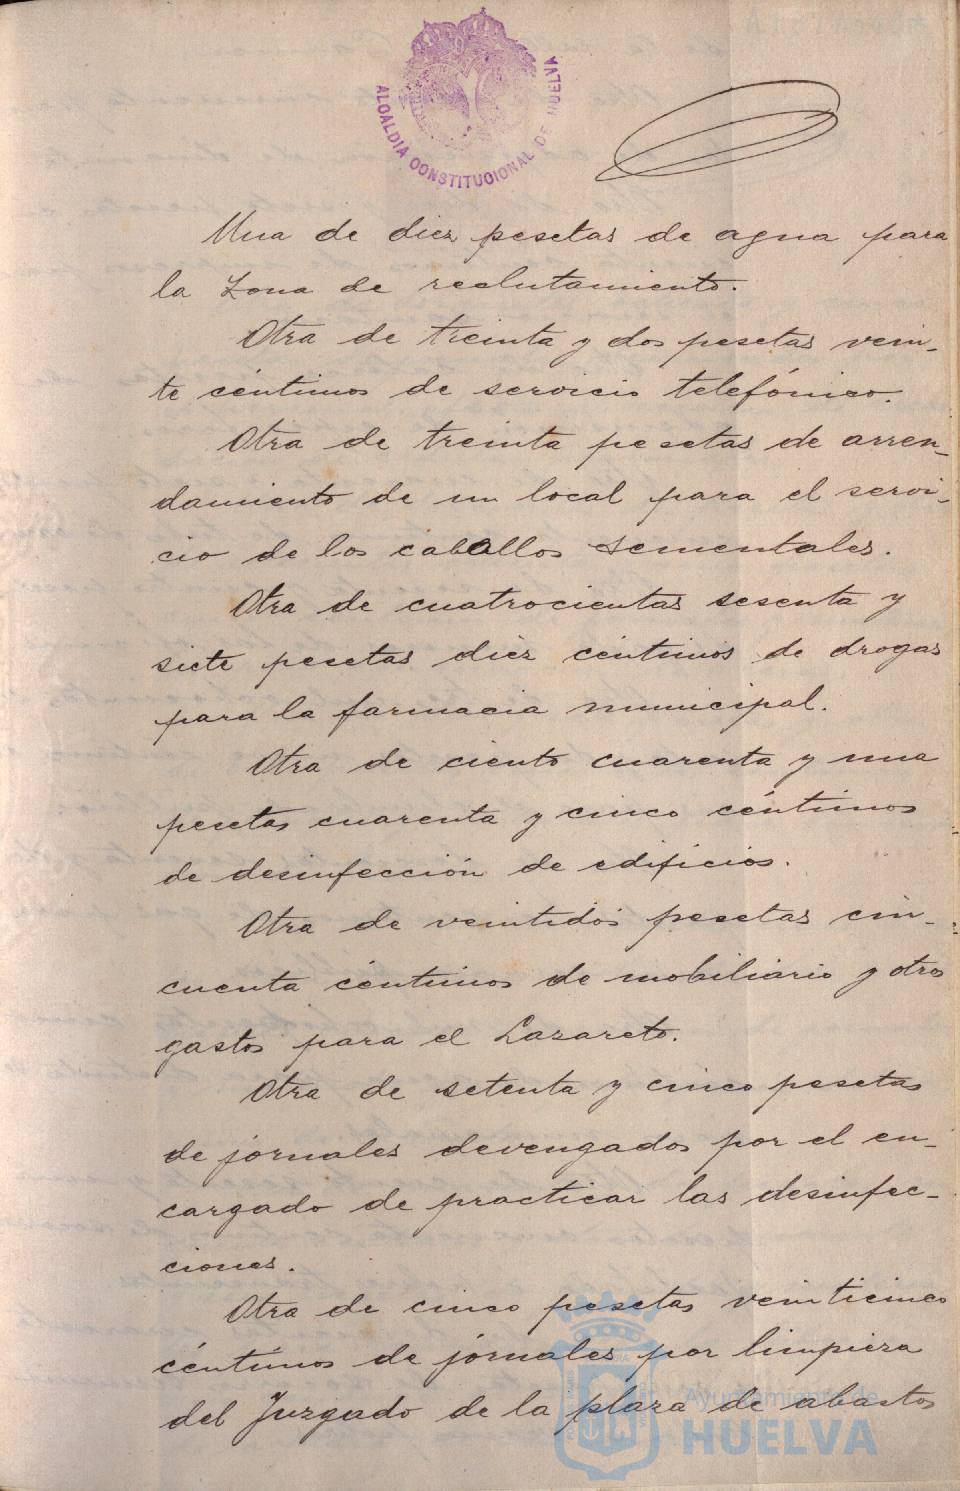 ALCALDIA CONSTITUCIONAL DE HUELVA
Una de diez pesetas de agua para
la Zona de reclutamiento.
Otra de treinta y dos pesetas vein-
te céntimos de servicio telefónico.
Otra de treinta pesetas de arren-
damiento de un local para el servi-
cio de los caballos sementales.
Otra de cuatrocientas sesenta y
siete pesetas diez céntimos de drogas
para la farmacia municipal.
Otra de ciento cuarenta y una
pesetas cuarenta y cinco céntimos
de desinfección de edificios.
Otra de veintidós pesetas cin-
cuenta céntimos de mobiliario y otros
gastos para el Lazareto.
Otra de setenta y cinco pesetas
de jornales devengados por el en-
cargado de practicar las desinfec-
ciones.
Otra de cinco pesetas veinticinco
céntimos de jornales por limpieza
del Juzgado de la plaza de abastos
Ayuntamiento de
HUELVA